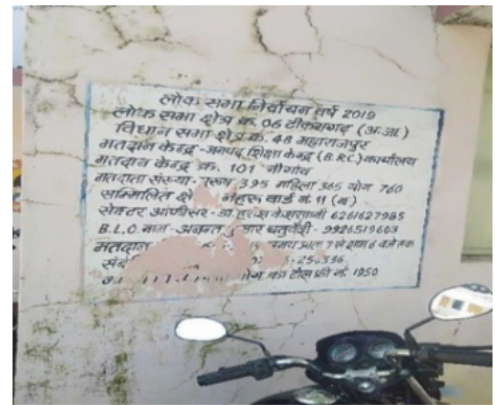 लोक सभा निर्वाचन वर्ष 2019
लोक सभा क्षेत्र क्र. 06 टीकमगढ़ (अ.जा.)
विधान सभा क्षेत्र क्र. 48 महाराजपुर
मतदान केन्द्र -जनपद शिक्षा केन्द्र (B.R.C.) कार्यालय
मतदान केन्द्र क्र. 101 नौगांव
मतदाता संख्या- पुरूष 395 महिला 365 योग 760
सम्मिलित क्षे नेहरू वार्ड नं. 11 (ब)
सेक्टर ऑफीसर- 6261627985
B.L.O. नाम- कुमार चतुर्वेदी - 9926519603
मतदान समय प्रातः 7 से शाम 6 बजे तक
256336
का टोल फ्री नं. 1950